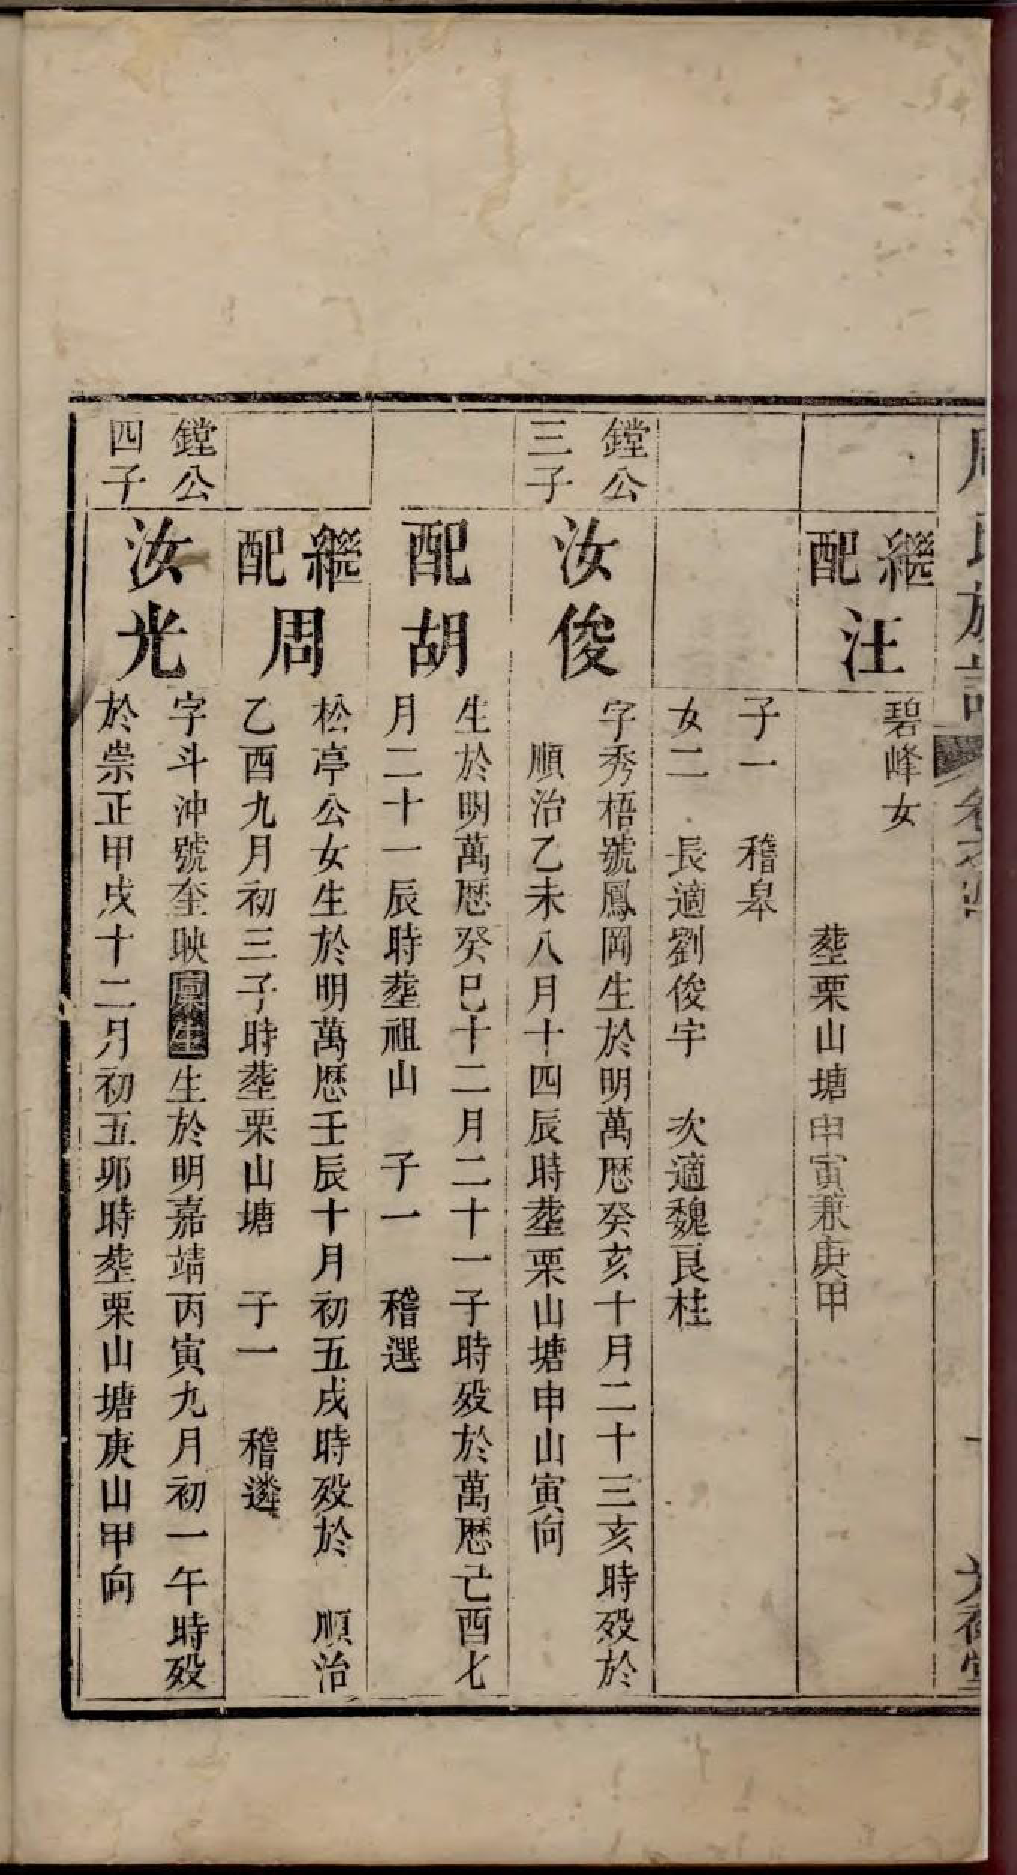 繼配汪
碧峰女
塟栗山塘申寅兼庚甲
子一　稽皋
女二　長適劉俊宇　次適魏良桂
鏜公
三子
汝俊
字秀梧號鳳岡生於明萬厯癸亥十月二十三亥時殁於
順治乙未八月十四辰時塟栗山塘申山寅向
配胡
生於明萬厯癸巳十二月二十一子時殁於萬厯己酉七
月二十一辰時塟祖山　子一　稽選
繼配周
松亭公女生於明萬厯壬辰十月初五戌時殁於　順治
乙酉九月初三子時塟栗山塘　子一　稽遴
鏜公
四子
汝光
字斗沖號奎映生於明嘉靖丙寅九月初一午時殁
於崇正甲戌十二月初五卯時塟栗山塘庚山甲向